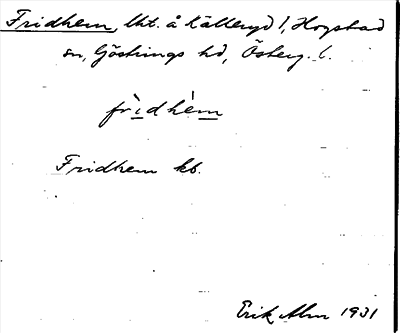 Fridhem, lht. å Källeryd 1, Hogstad
sn, Göstrings hd, Österg. l.
frìdhèm
Fridhem kb.
Erik Alm 1931